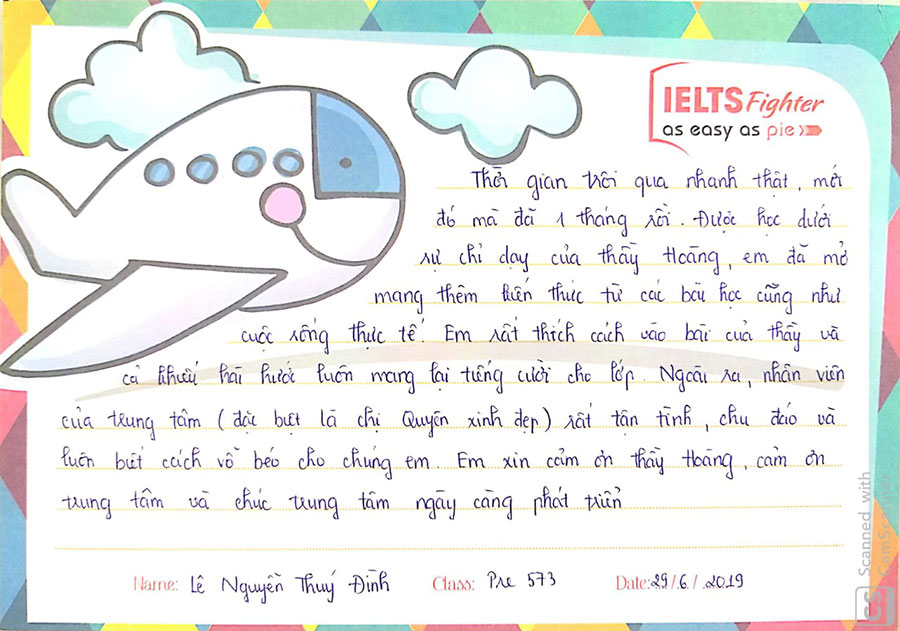 IELTS Fighter
as easy as pie
Thời gian trôi qua nhanh thật, mới
đó mà đã 1 tháng rồi. Được học dưới
sự chỉ dạy của thầy Hoàng, em đã mở
mang thêm kiến thức từ các bài học cũng như
cuộc sống thực tế. Em rất thích cách vào bài của thầy và
cả khiếu hài hước luôn mang lại tiếng cười cho lớp. Ngoài ra, nhân viên
của trung tâm (đặc biệt là chị Quyên xinh đẹp) rất tận tình, chu đáo và
luôn biết cách vỗ béo cho chúng em. Em xin cảm ơn thầy Hoàng, cảm ơn
trung tâm và chúc trung tâm ngày càng phát triển
Name: Lê Nguyễn Thuý Đình Class: Pre 573 Date: 29/6/2019
CS Scanned with
CamScanner